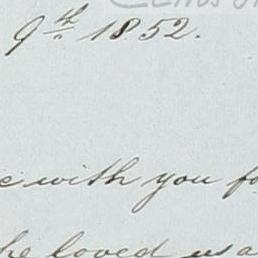 9th 1852.
with you
he loved us